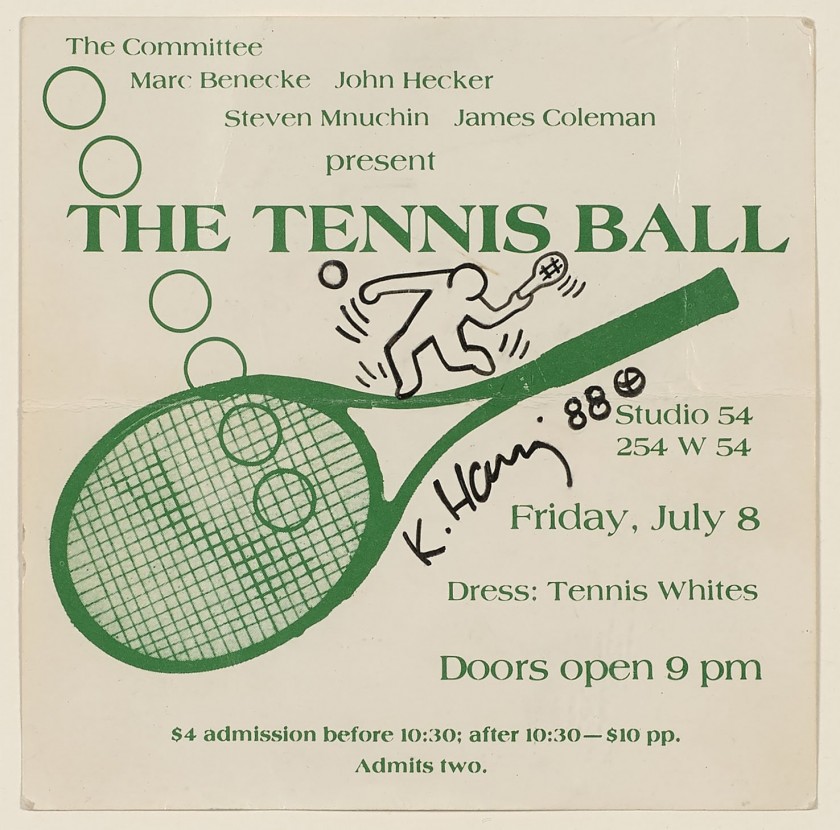 The Committee
Marc Benecke John Hecker
Steven Mnuchin James Coleman
present
THE TENNIS BALL
K. Haring 88
Studio 54
254 W 54
Friday, July 8
Dress: Tennis Whites
Doors open 9 pm
$4 admission before 10:30; after 10:30—$10 pp.
Admits two.